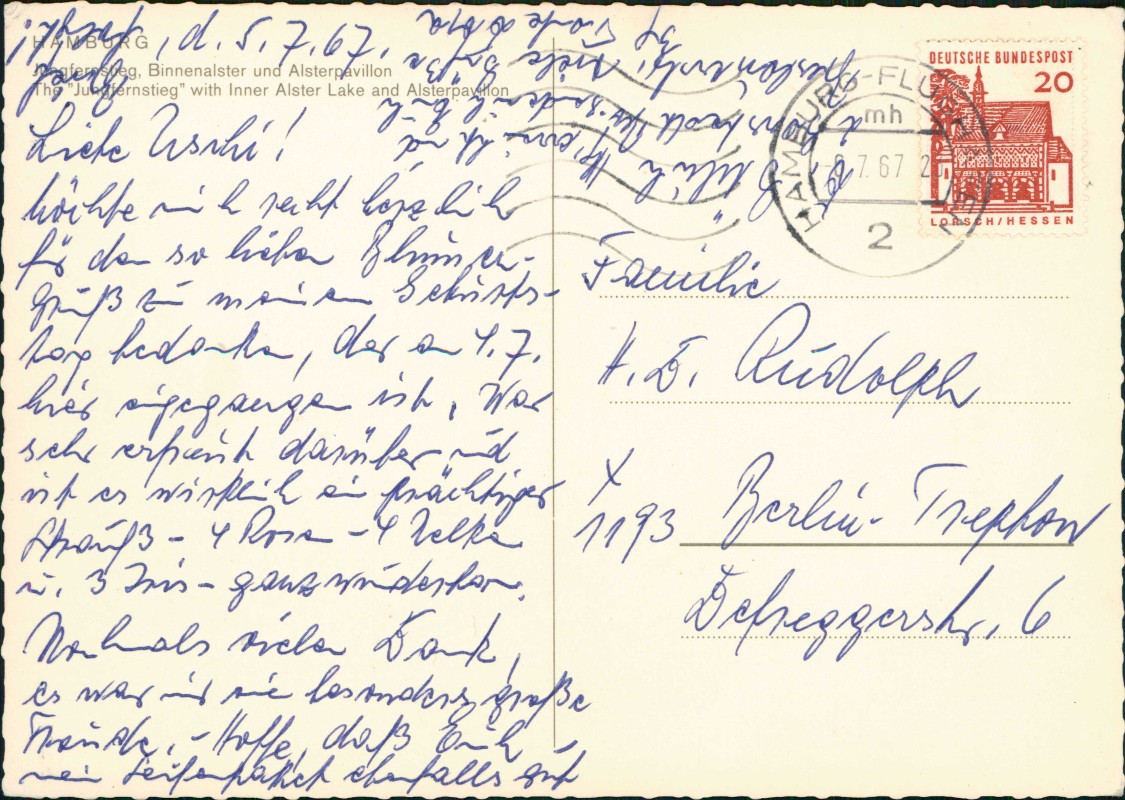 HAMBURG
Jungfernstieg, Binnenalster und Alsterpavillon
The "Jungfernstieg" with Inner Alster Lake and Alsterpavillon
, d. 5.7.67.
Liebe Uschi!
Möchte mich recht herzlich
für den so lieben Blumen-
gruß zu meinem Geburts-
tag bedanken, der am 4.7.
hier eigegangen ist. War
sehr erfreut darüber und
ist es wirklich ein prächtiger
Strauß - 4 Rosen - 4 Nelken
u. 3 Iris - ganz wunderbar.
Nochmals vielen Dank,
es war mir eine besonders große
Freude. - Hoffe, daß Euch
mein Seifenpaket ebenfalls gut
viele Grüße
DEUTSCHE BUNDESPOST
20
LORSCH/HESSEN
HAMBURG-FLUGHAFEN
mh
7.67
2
Familie
H. D. Rudolph
X
1193 Berlin-Treptow
Defreggerstr. 6